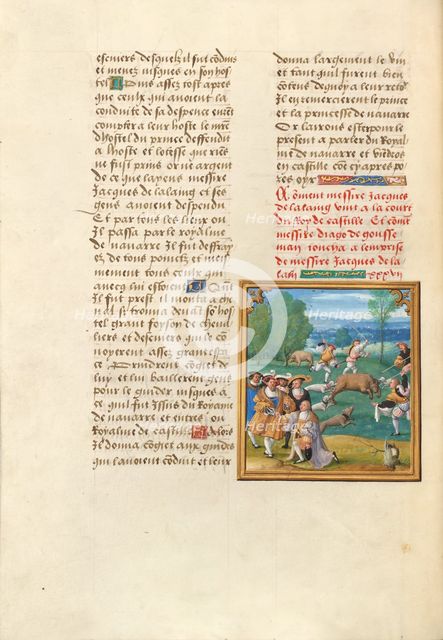 escuiers desquelz il fut côduis
et menez jusques en son hos
tel Puis assez tost apres
que ceulx qui avoient la
conduite de sa despence eurêt
compter a leur hoste le mrê
dhostel du prince deffendi
a lhoste et lostesse que riês
ne fust prins or ne argent
de ce que layens messire
Jacques de lalaing et ses
gens avoient despendu
Et par tous les lieux ou
Il passa par le royalme
de navarre Il fut deffray
ez de tous poinctz et mes
mement tous ceulx qui
avecq lui estoient Quât
Il fut prest il monta a che
val si trouva devât so hos
tel grant foyson de cheval
liers et descuiers qui le cô
voyerent assez grant espa
ce Prindrent côgiet de
luy et lui baillerent gens
pour le guider jusques a
ce quil fut jssus du Royame
de navarre et entre ou
Royalme de castille Adôcq
Il dôna côgiet aux guides
qui lavoient côduit et leur
donna largement le vin
et tant quil furent bien
côtens de quoy a leur reto'
Il en remercierêt le prince
et la princesse de navarre
Or lairons ester pour le
present a parler du Royal
me de navarre et vendrôs
en castille côe cy apres po
res oyr
Côment messire Jacques
de lalaing vint a la court
du Roy de castille Et cômê
messire diago de gousse
man toucha a lemprise
de messire Jacques de la
laing xxxvij
Heritage